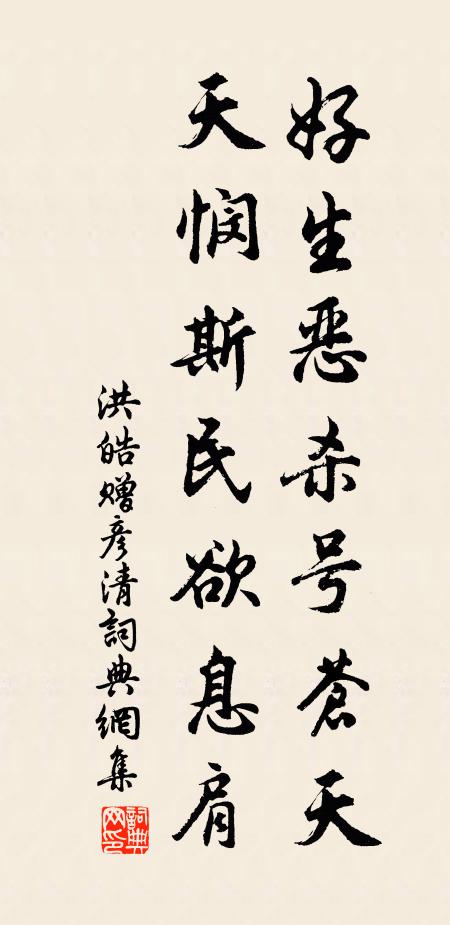 好生恶杀号苍天
天悯斯民欲息肩
洪皓赠彦清词典網集
詞典网印